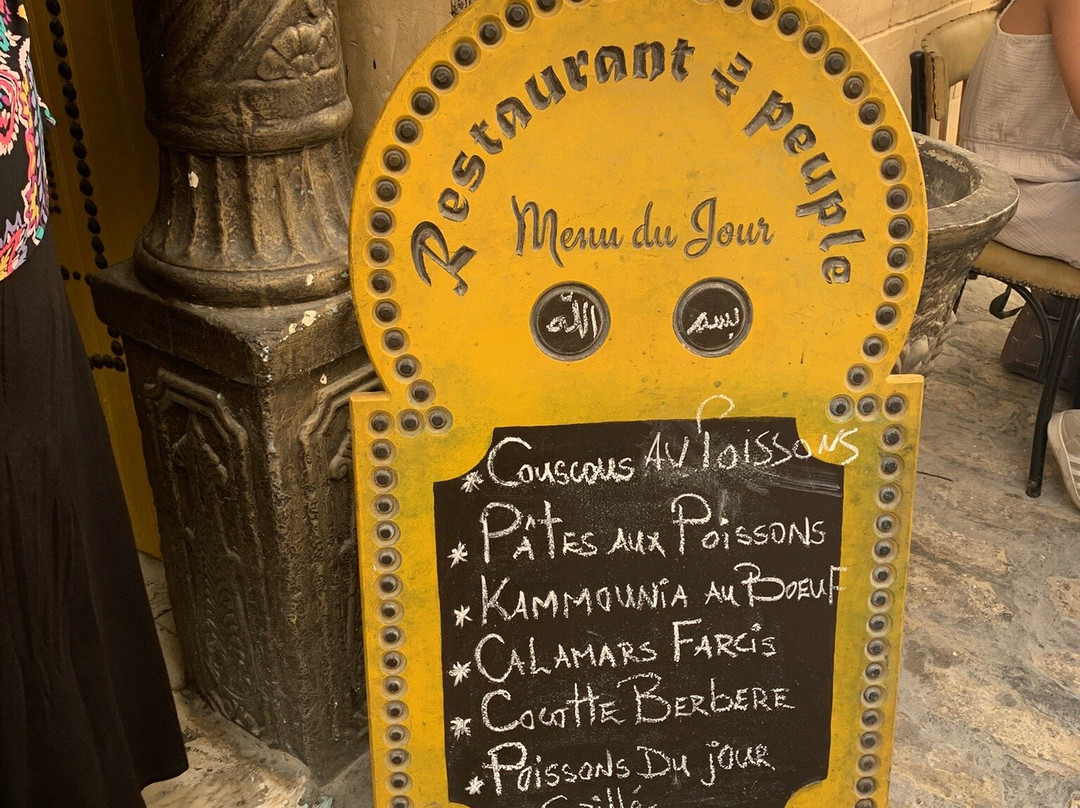 Restaurant du peuple
Menu du Jour
بسم الله
* Couscous AU Poissons
* PÂTES AUX POISSONS
* KAMMOUNIA AU BOEUF
* CALAMARS FARCIS
* COCOTTE BERBERE
* POISSONS DU JOUR
Grillé